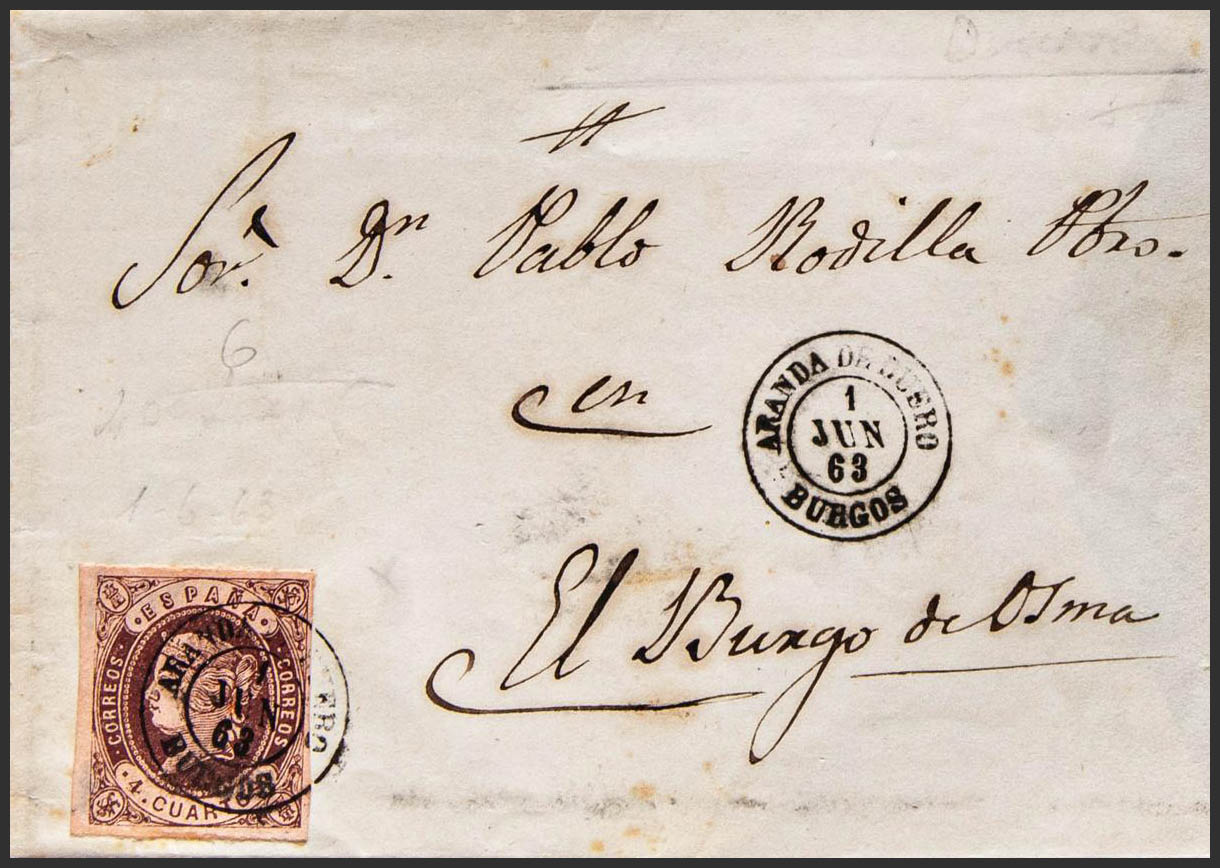 Sor. Dn. Pablo Rodilla Pbro.
6
en
ARANDA DE DUERO
1
JUN
63
BURGOS
El Burgo de Osma
ESPAÑA
CORREOS
CORREOS
4. CUAR
ARANDA DUERO
1
JUN
63
BURGOS